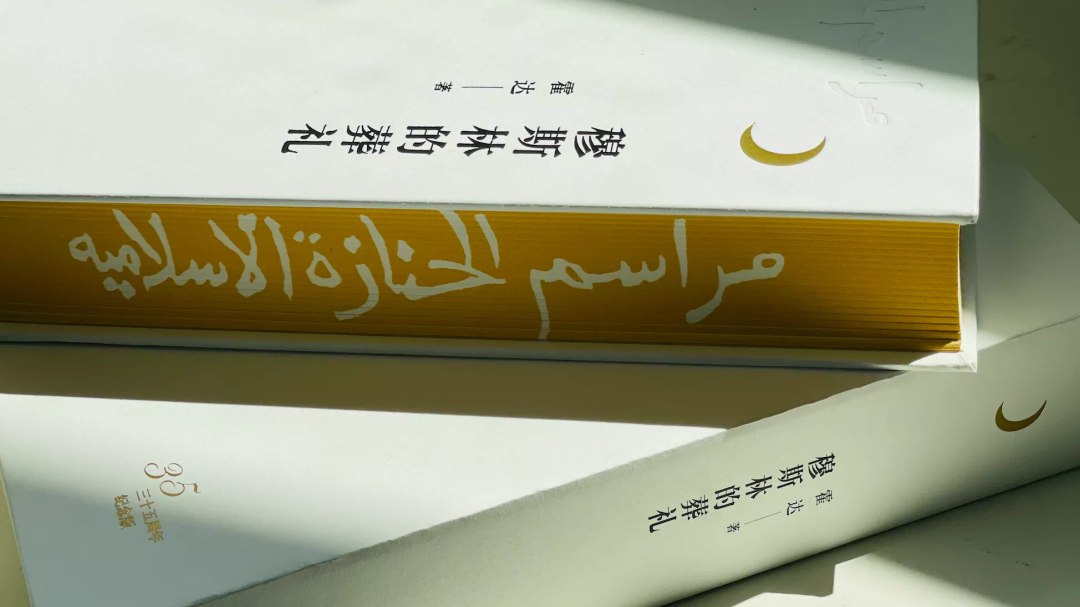 霍达——著
穆斯林的葬礼
مراسم الجنازة الاسلاميه
35
三十五周年
纪念版
穆斯林的葬礼
霍达——著